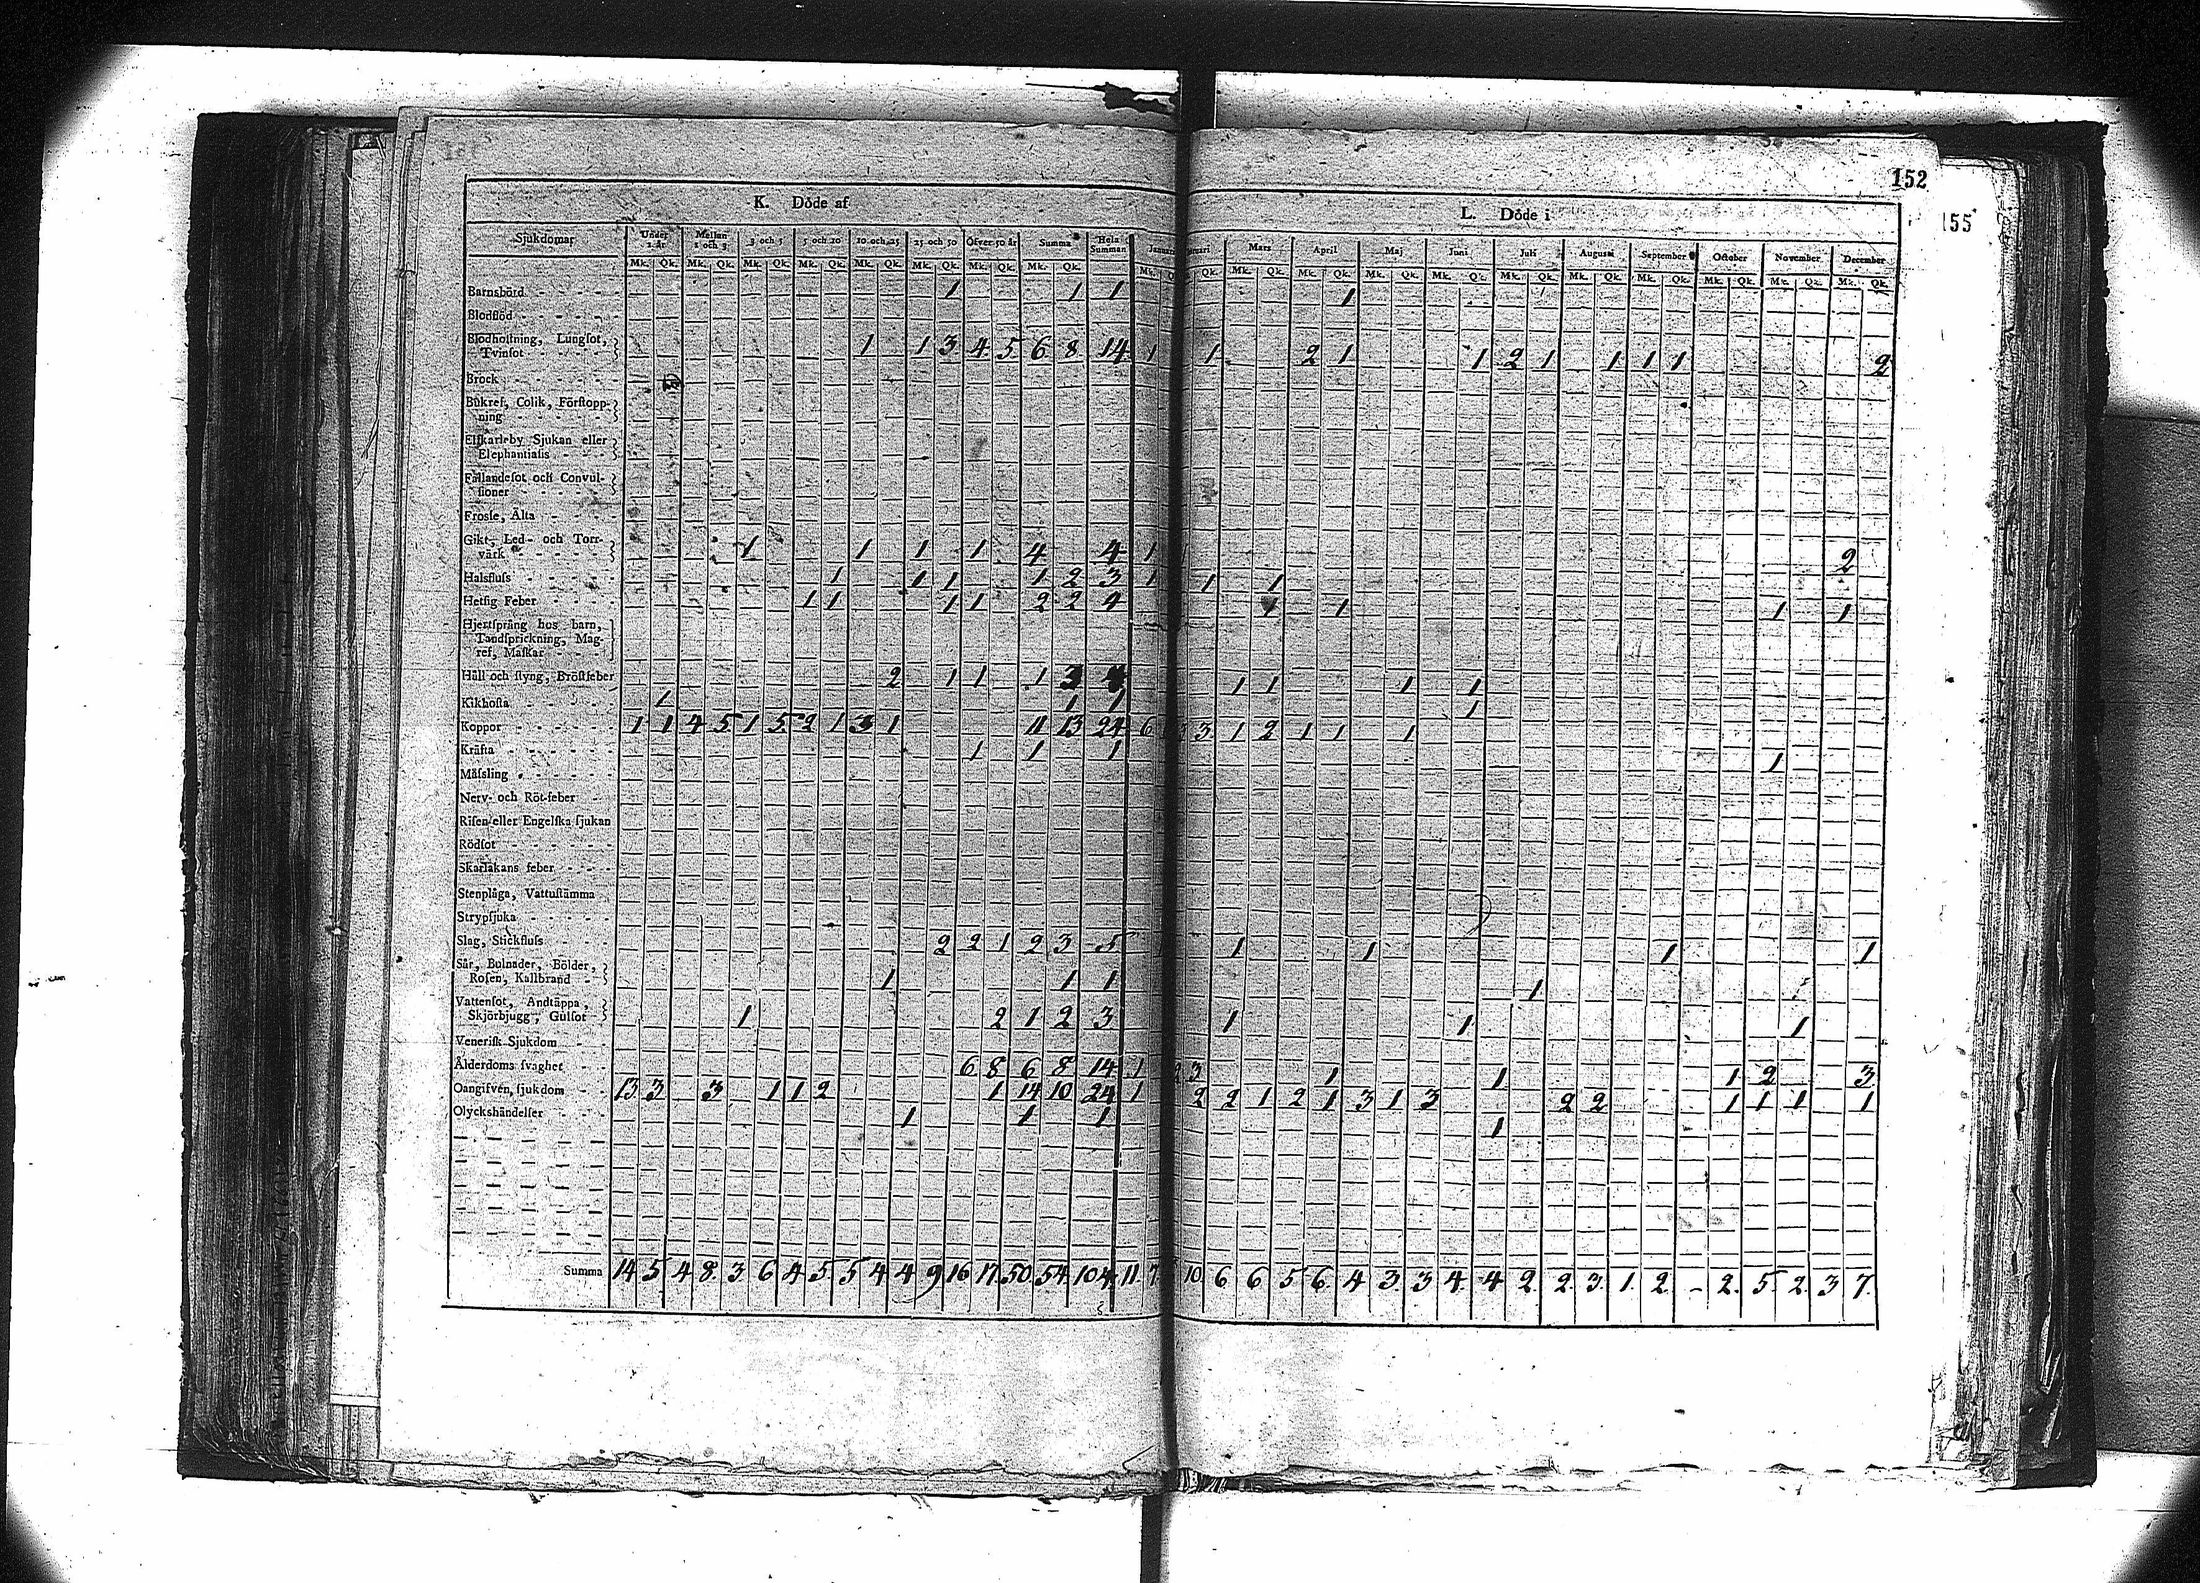 152
155
K. Döde af
L. Döde i
Sjukdomar Under 1 år Mellan 1 och 3 3 och 5 5 och 10 10 och 25 25 och 50 Öfver 50 år Summa Hela Summan Januari Mars April Maj Juni Juli Augusti September October November December
Mk. Qk. Mk. Qk. Mk. Qk. Mk. Qk. Mk. Qk. Mk. Qk. Mk. Qk. Mk. Qk. Mk. Qk. Mk. Qk. Mk. Qk. Mk. Qk. Mk. Qk. Mk. Qk. Mk. Qk. Mk. Qk. Mk. Qk. Mk. Qk. Mk. Qk.
Barnsbörd 1 1 1 1
Blodflöd
Blodhostning, Lungsot,
Tvinsot 1 1 3 4 5 6 8 14 1 1 2 1 1 2 1 1 1 1 2
Bråck
Bukref, Colik, Förstopp-
ning
Elfkarleby Sjukan eller
Elephantiasis
Fallandesot och Convul-
sioner
Frossa, Älta
Gikt, Led- och Torr-
värk 1 1 1 1 4 4 1 2
Halsfluss 1 1 1 1 2 3 1 1 1
Hetsig Feber 1 1 1 1 2 2 4 1 1 1 1
Hjertsprång hos barn,
Tandsprickning, Mag-
ref, Maskar
Håll och styng, Bröstfeber 2 1 1 1 3 4 1 1 1 1
Kikhosta 1 1 1 1
Koppor 1 1 4 5 1 5 2 1 3 1 11 13 24 6 3 3 1 2 1 1 1
Kräfta 1 1 1 1
Mässling
Nerv- och Röt-feber
Risen eller Engelska sjukan
Rödsot
Skarlakans feber
Stenplåga, Vattustämma
Strypsjuka
Slag, Stickfluss 2 2 1 2 3 5 1 1 1 1
Sår, Bulnader, Bölder,
Rosen, Kallbrand 1 1 1 1
Vattensot, Andtäppa,
Skjörbjugg, Gulsot 1 2 1 2 3 1 1 1
Venerisk Sjukdom
Ålderdoms svaghet 6 8 6 8 14 1 3 1 1 1 2 3
Oangifven sjukdom 13 3 3 1 1 2 1 14 10 24 1 2 2 1 2 1 3 1 3 2 2 1 1 1 1
Olyckshändelser 1 1 1 1
Summa 14 5 4 8 3 6 4 5 5 4 4 9 16 17 50 54 104 11 7 10 6 6 5 6 4 3 3 4 4 2 2 3 1 2 - 2 5 2 3 7